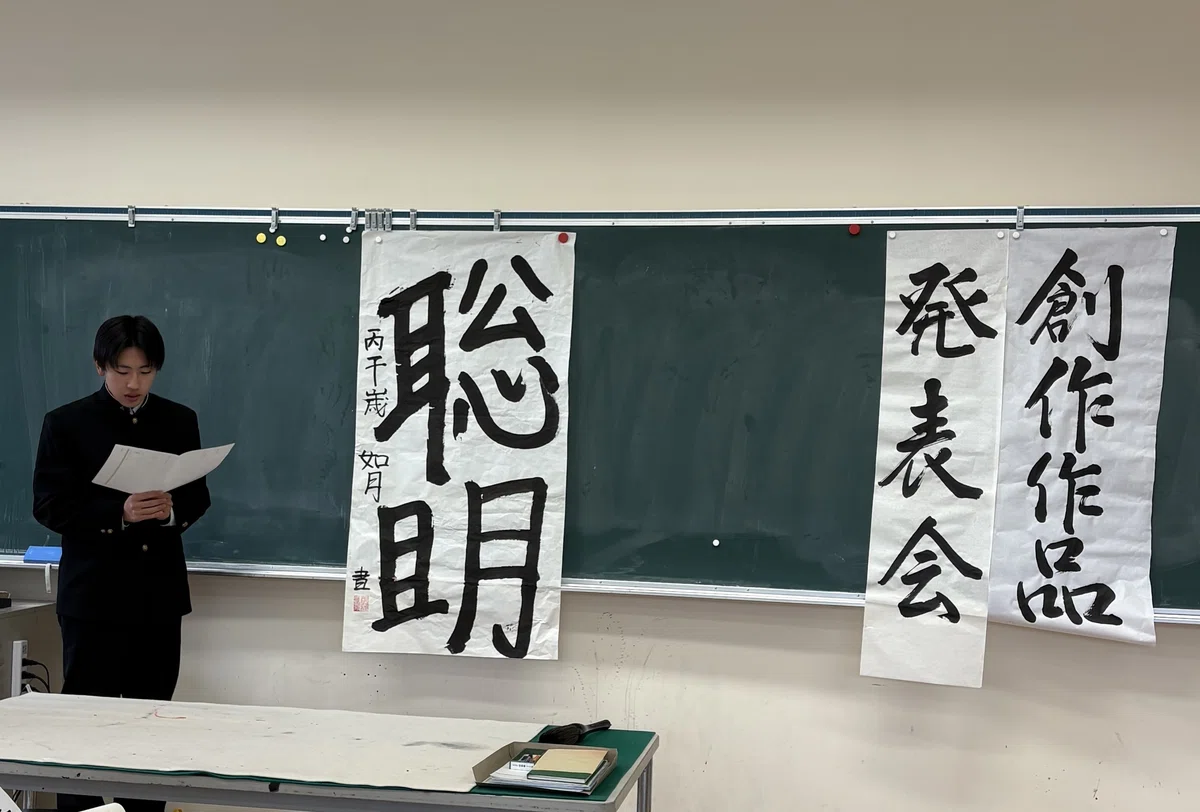 創作作品
発表会
聡明
丙午歳 如月 書